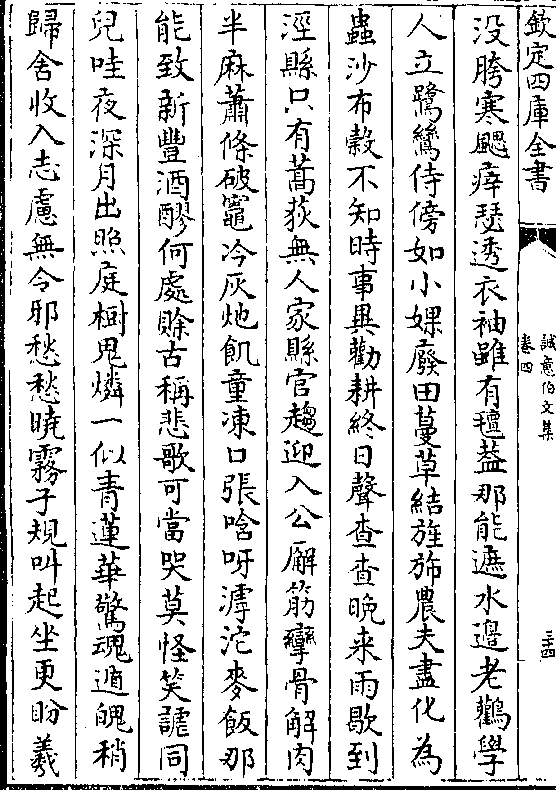 欽定四庫全書
誠意伯文集
卷四
三十四
没胯寒颸瘁瑟透衣袖雖有氊葢那能遮水邊老鸛學
人立鷺鷥侍傍如小婐廢田蔓草結旌斾農夫盡化為
蟲沙布穀不知時事異勸耕終日聲查查晚来雨歇到
涇縣只有蒿荻無人家縣官趨迎入公廨筋攣骨解肉
半麻蕭條破竈冷灰灺飢童凍口張唅呀滹沱麥飯那
能致新豐酒醪何處賒古稱悲歌可當哭莫怪笑謔同
兒哇夜深月出照庭樹鬼燐一似青蓮華驚魂遁魄稍
歸舍收入志慮無令邪愁愁曉霧子規叫起坐更盼羲